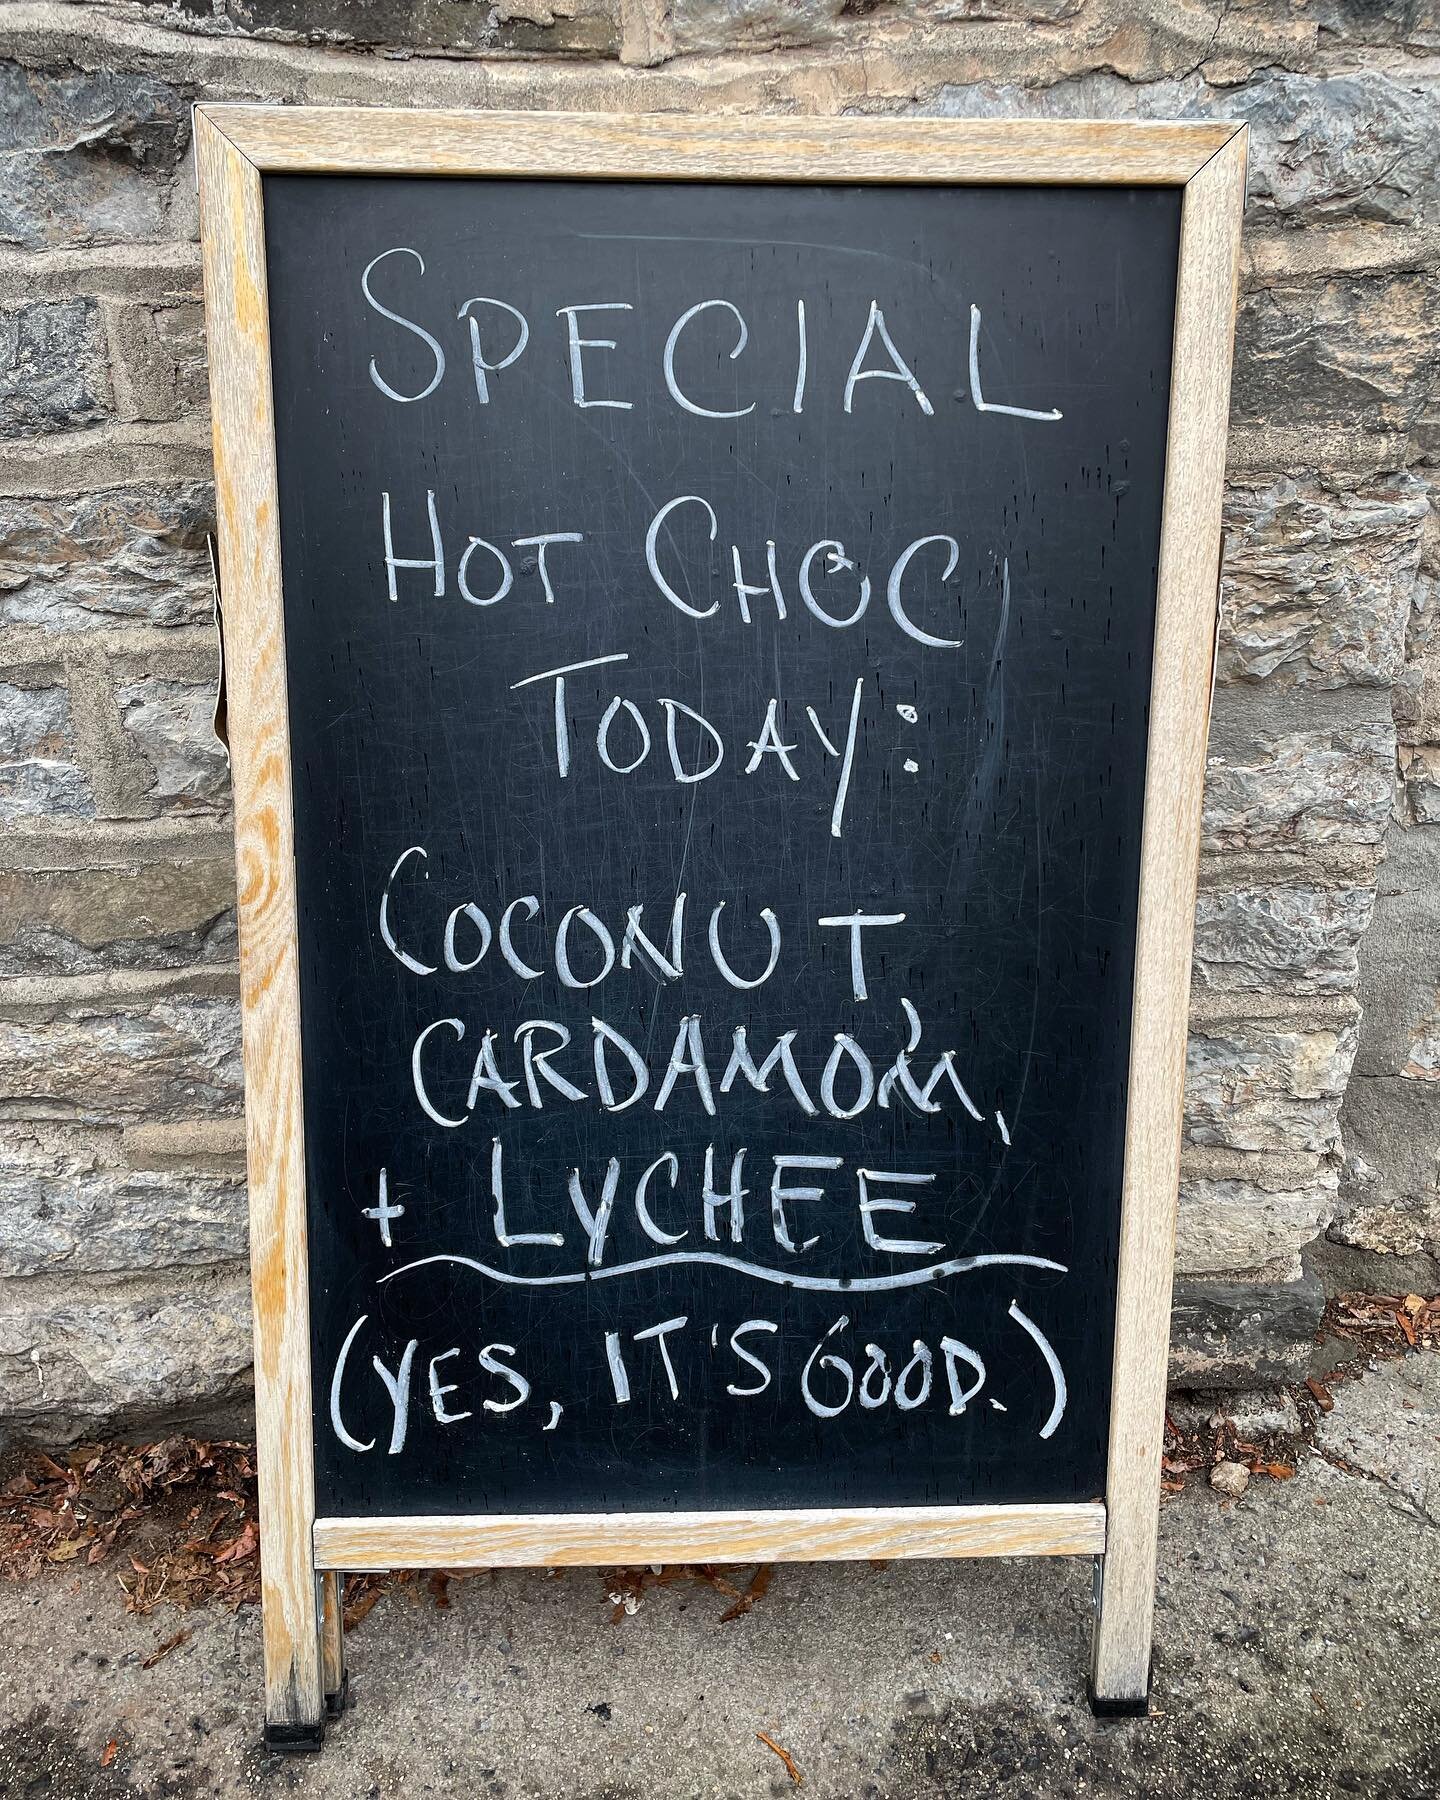 SPECIAL
HOT CHOC
TODAY:
COCONUT,
CARDAMOM,
+ LYCHEE
(YES, IT'S GOOD.)